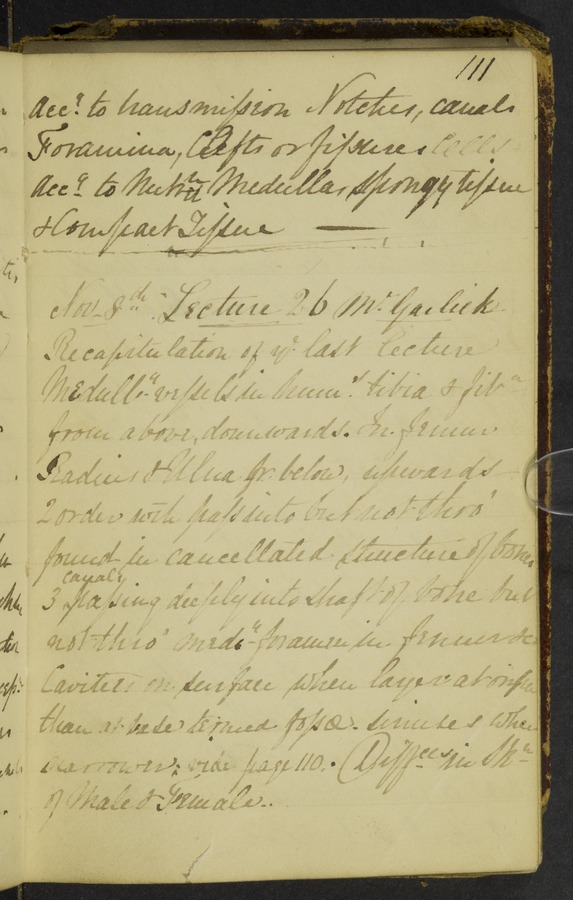 111
Accg. to transmifsion Notches, canals
Foramina, Clefts or fifsures Cells
Accg. to Nutrn Medullar spongy tifsue
& Compact Tifsue
Nov. 8th Lecture 26 Mr. Garlick
Recapitulation of ye last lecture
Medullry vefsels in hums. tibia & fiba
from above, downwards. In femur
Radius & Ulna fr. below, upwards
2 order wch pafs into but not thro'
found in cancellated structure of bones
canals
3 pafsing deeply into shaft of bone but
not thro' medy foramen in femur &c
Cavities on surface when larger at orifice
than at base termed fofsæ. sinuses when
narrower: vide page 110. (Diffces in Skn
of Male & Female..